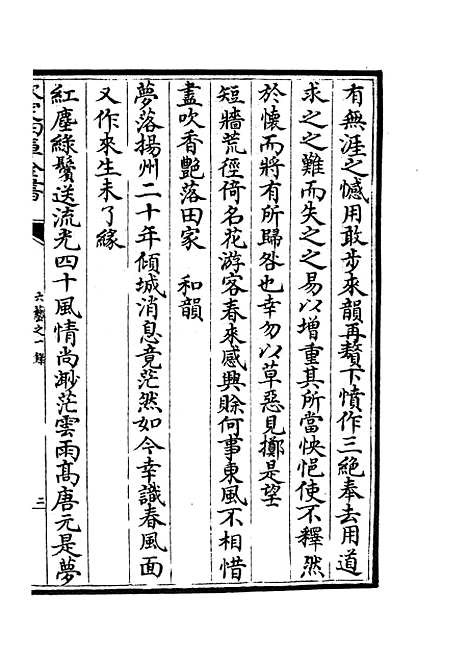 有無涯之憾用敢步來韻再贅下憤作三絶奉去用道
求之之難而失之之易以增重其所當怏悒使不釋然
於懷而將有所歸咎也幸勿以草惡見擲是望
短牆荒徑倚名花游客春來感興賖何事東風不相惜
盡吹香艷落田家 和韻
夢落揚州二十年傾城消息竟茫然如今幸識春風面
又作來生未了緣
紅塵綠鬢送流光四十風情尚渺茫雲雨髙唐元是夢
欽定四庫全書
六藝之一錄
三